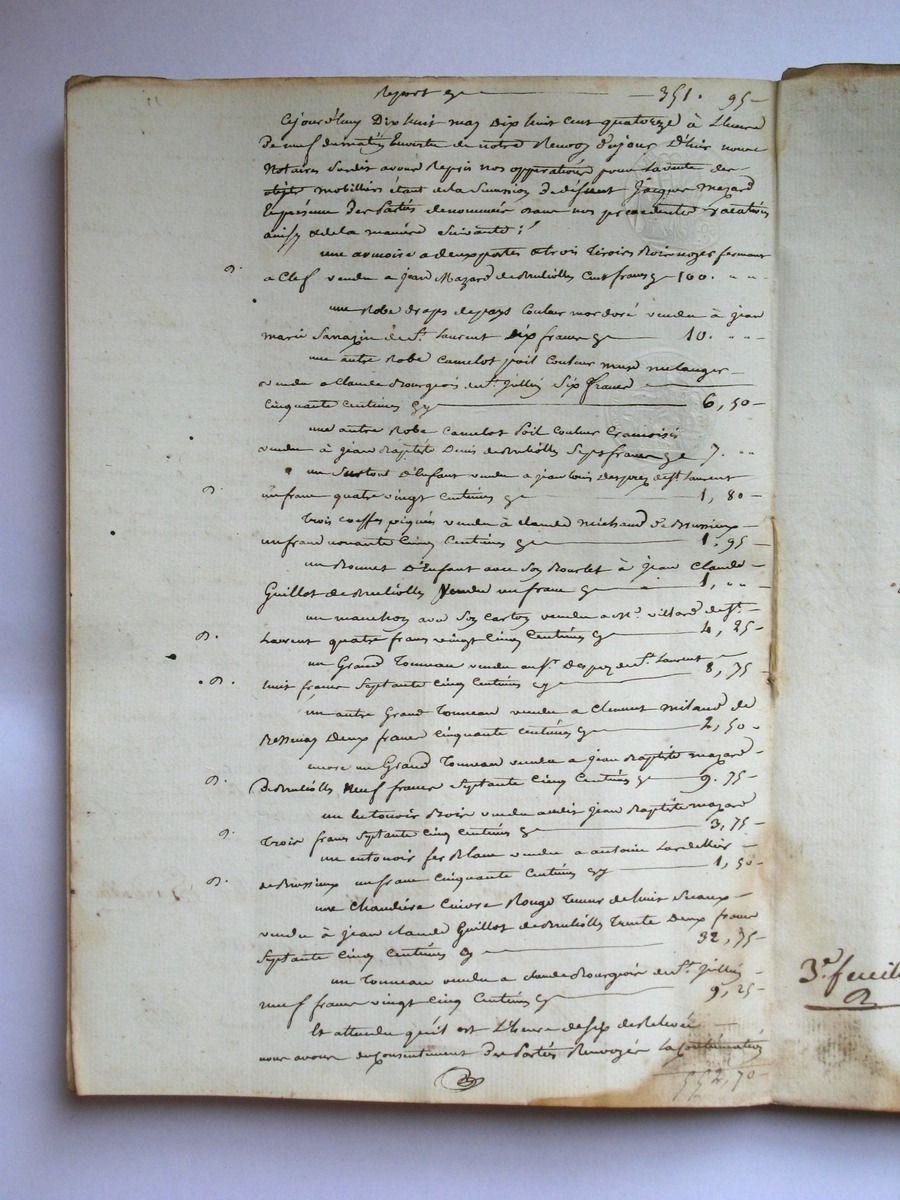 Report cy 351. 95
Cejourd'huy Dix huit may Dix huit cent quatorze à L'heure
De neuf du matin Ensuite de notre Renvoy Dujour D'hier nous
Notaires Susdit avons Repris nos opperations pour La vente des
objets mobilliers étant de la Sucession De déffunt Jacques Mazard
En présence Des Parties denommés dans nos précedentes vacations
ainsy et de la maniere Suivante :
une armoire a deux portes et trois tiroirs Bois noyer fermant
p. a Clef vendu a jean Mazard de Brulliolles Cent francs cy 100. " "
une Robe draps de pays Couleur mordoré vendu à jean
marie Sarrazin de St. Laurent Dix francs cy 10. " "
une autre Robe camelot poil Couleur muse melanger
vendu a Claude Bourgeois de St. jullien Six francs
Cinquante Centimes cy 6, 50
une autre Robe Camelot Poil Couleur Cramoisis
vendu à jean Baptiste Denis de Brulliolles Sept francs cy 7. "
un Surtout D'Enfant vendu a jean louis Desprez de St. Laurent
p. un franc quatre vingt Centimes cy 1, 80
Trois coeffes piquées vendu à claude michaud de Brussieux
un franc nonante Cinq Centimes cy 1. 95
un Bonnet D'Enfant avec Son Bourlet à jean Claude
Guillot de Brulliolles Vendu un franc cy 1, " "
un manchon avec Son Carton vendu a Mr. villard de St.
p. Laurent quatre francs vingt Cinq Centimes cy 4, 25
un Grand Tonneau vendu au Sr. Desprez de St. Laurent
p. huit francs Septante Cinq Centimes cy 8, 75
un autre Grand Tonneau vendu a Clement milaud de
Bessenay Deux francs Cinquante centimes cy 2, 50
encore un Grand Tonneau vendu a jean Baptiste mazard
p. de Brulliolles Neuf francs Septante Cinq Centimes cy 9. 75
un Entonoir Bois vendu audit Jean Baptiste mazard
p. Trois francs Septante Cinq Centimes cy 3, 75
un entonoir fer Blanc vendu a antoine Lardellier
p. de Brussieux un franc Cinquante Centimes cy 1, 50
une Chaudiere Cuivre Rouge Teneur de huit Seaux
vendu à jean claude Guillot de Brulliolles Trente Deux francs
Septante Cinq Centimes cy 32, 75
un Tonneau vendu a Claude Bourgeois de St. jullien
neuf francs vingt Cinq Centimes cy 9, 25
Et attendu qu'il est L'heure de Six de Relevée
nous avons du Consentement Des Parties Renvoyée la Continuation
552, 70
3e. feuill